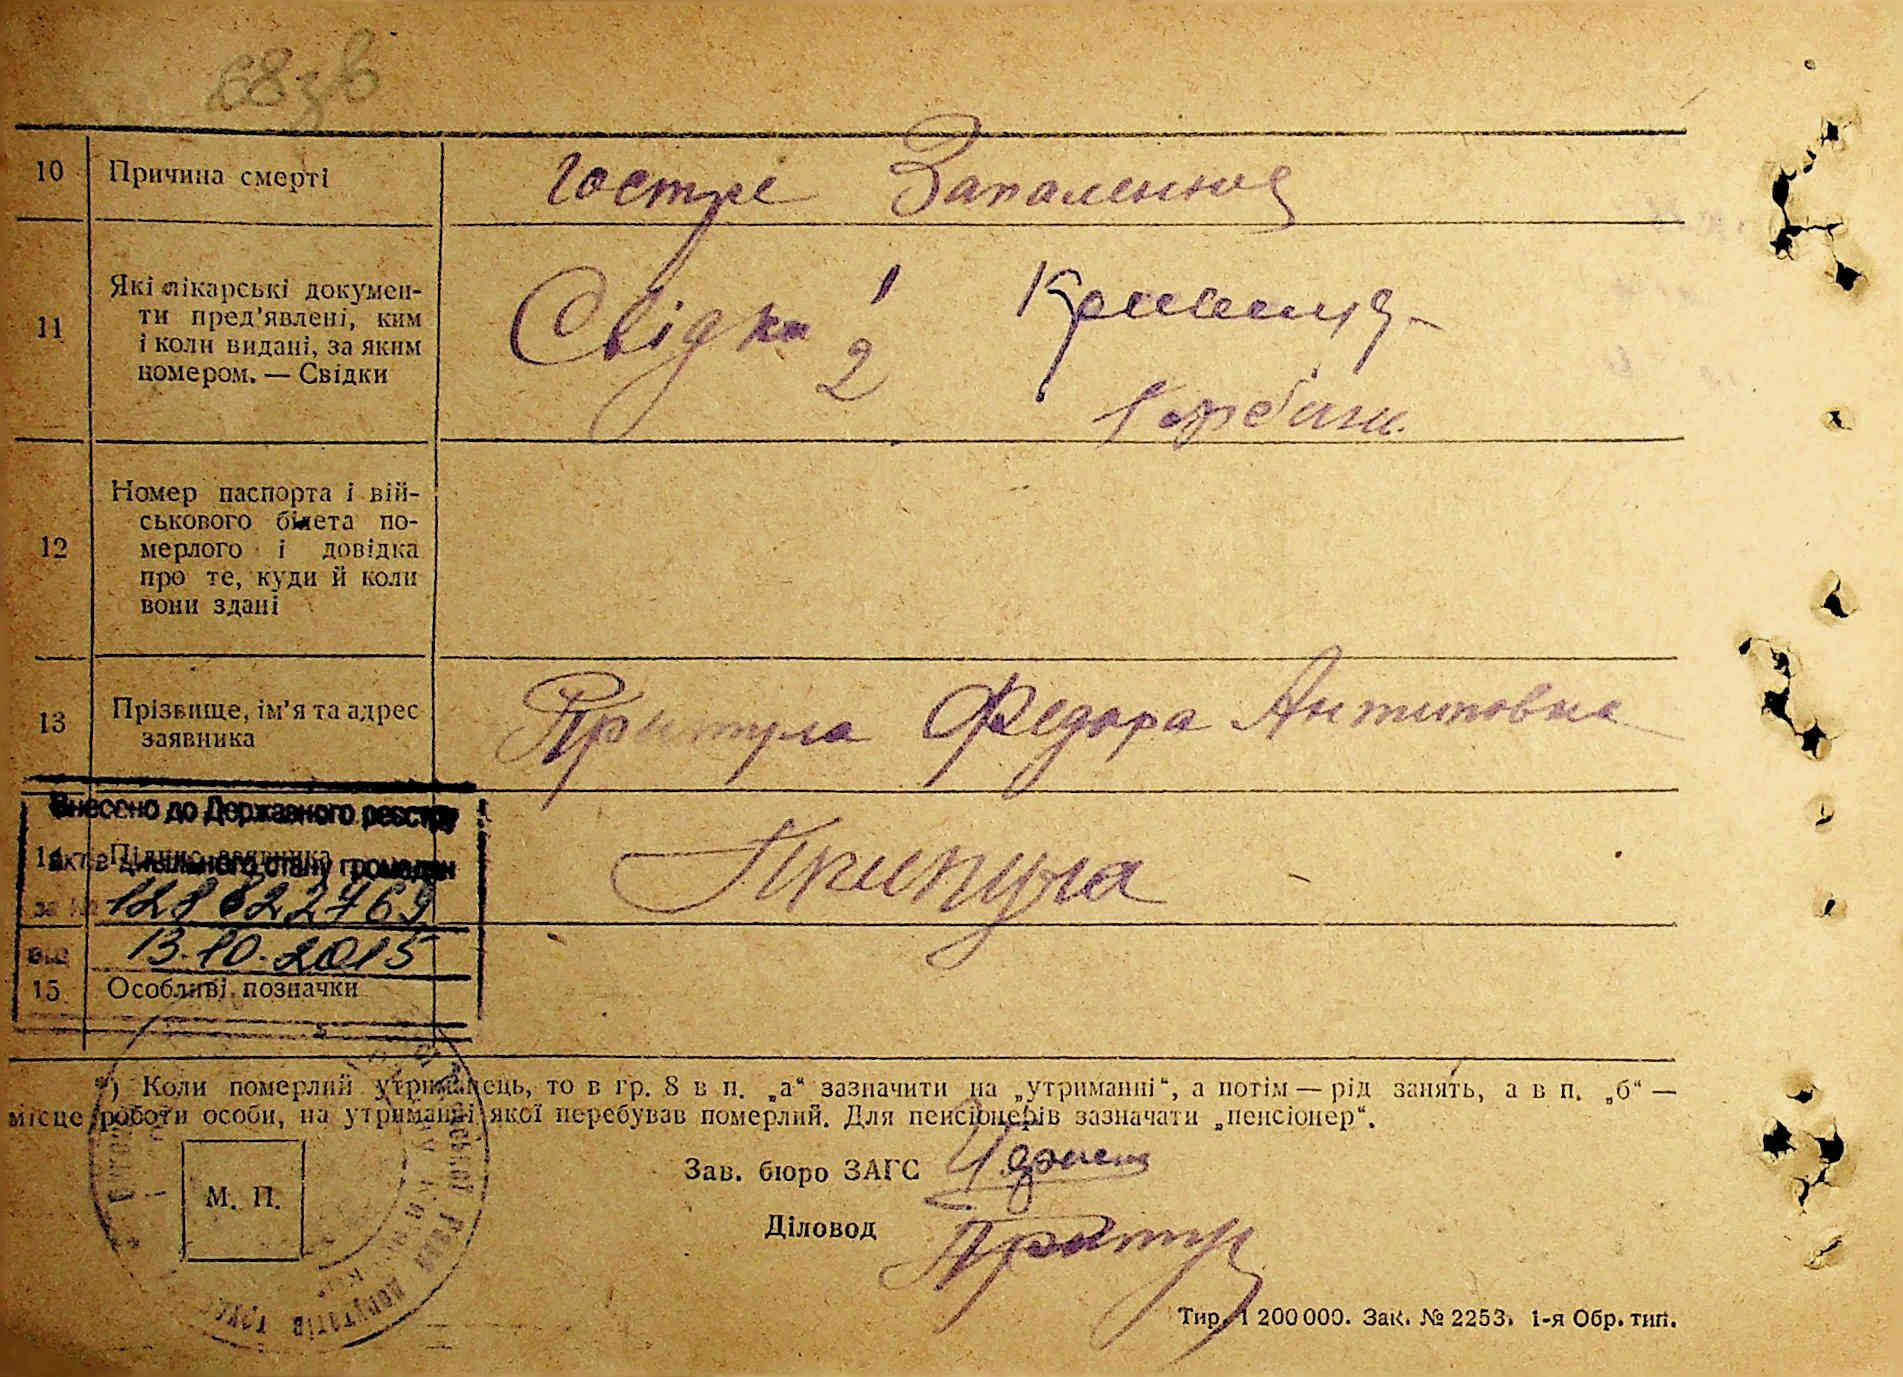 68зв
10 Причина смерті Гостре Запалення
11 Які лікарські докумен-
ти пред'явлені, ким
і коли видані, за яким
номером. — Свідки
Свідки 1
2 Горбань
12 Номер паспорта і вій-
ськового білета по-
мерлого і довідка
про те, куди й коли
вони здані
13 Прізвище, ім'я та адрес
заявника
Притула Федора Антиповна
Внесено до Державного реєстру
актів цивільного стану громадян
за № 128822769
від 13.10.2015
14 Підпис заявника Притула
15 Особливі позначки
*) Коли померлий утриманець, то в гр. 8 в п. „а“ зазначити на „утриманні“, а потім — рід занять, а в п. „б“ —
місце роботи особи, на утриманні якої перебував померлий. Для пенсіонерів зазначати „пенсіонер“.
Зав. бюро ЗАГС
М. П.
Діловод
Тир. 1 200 000. Зак. № 2253. 1-я Обр. тип.